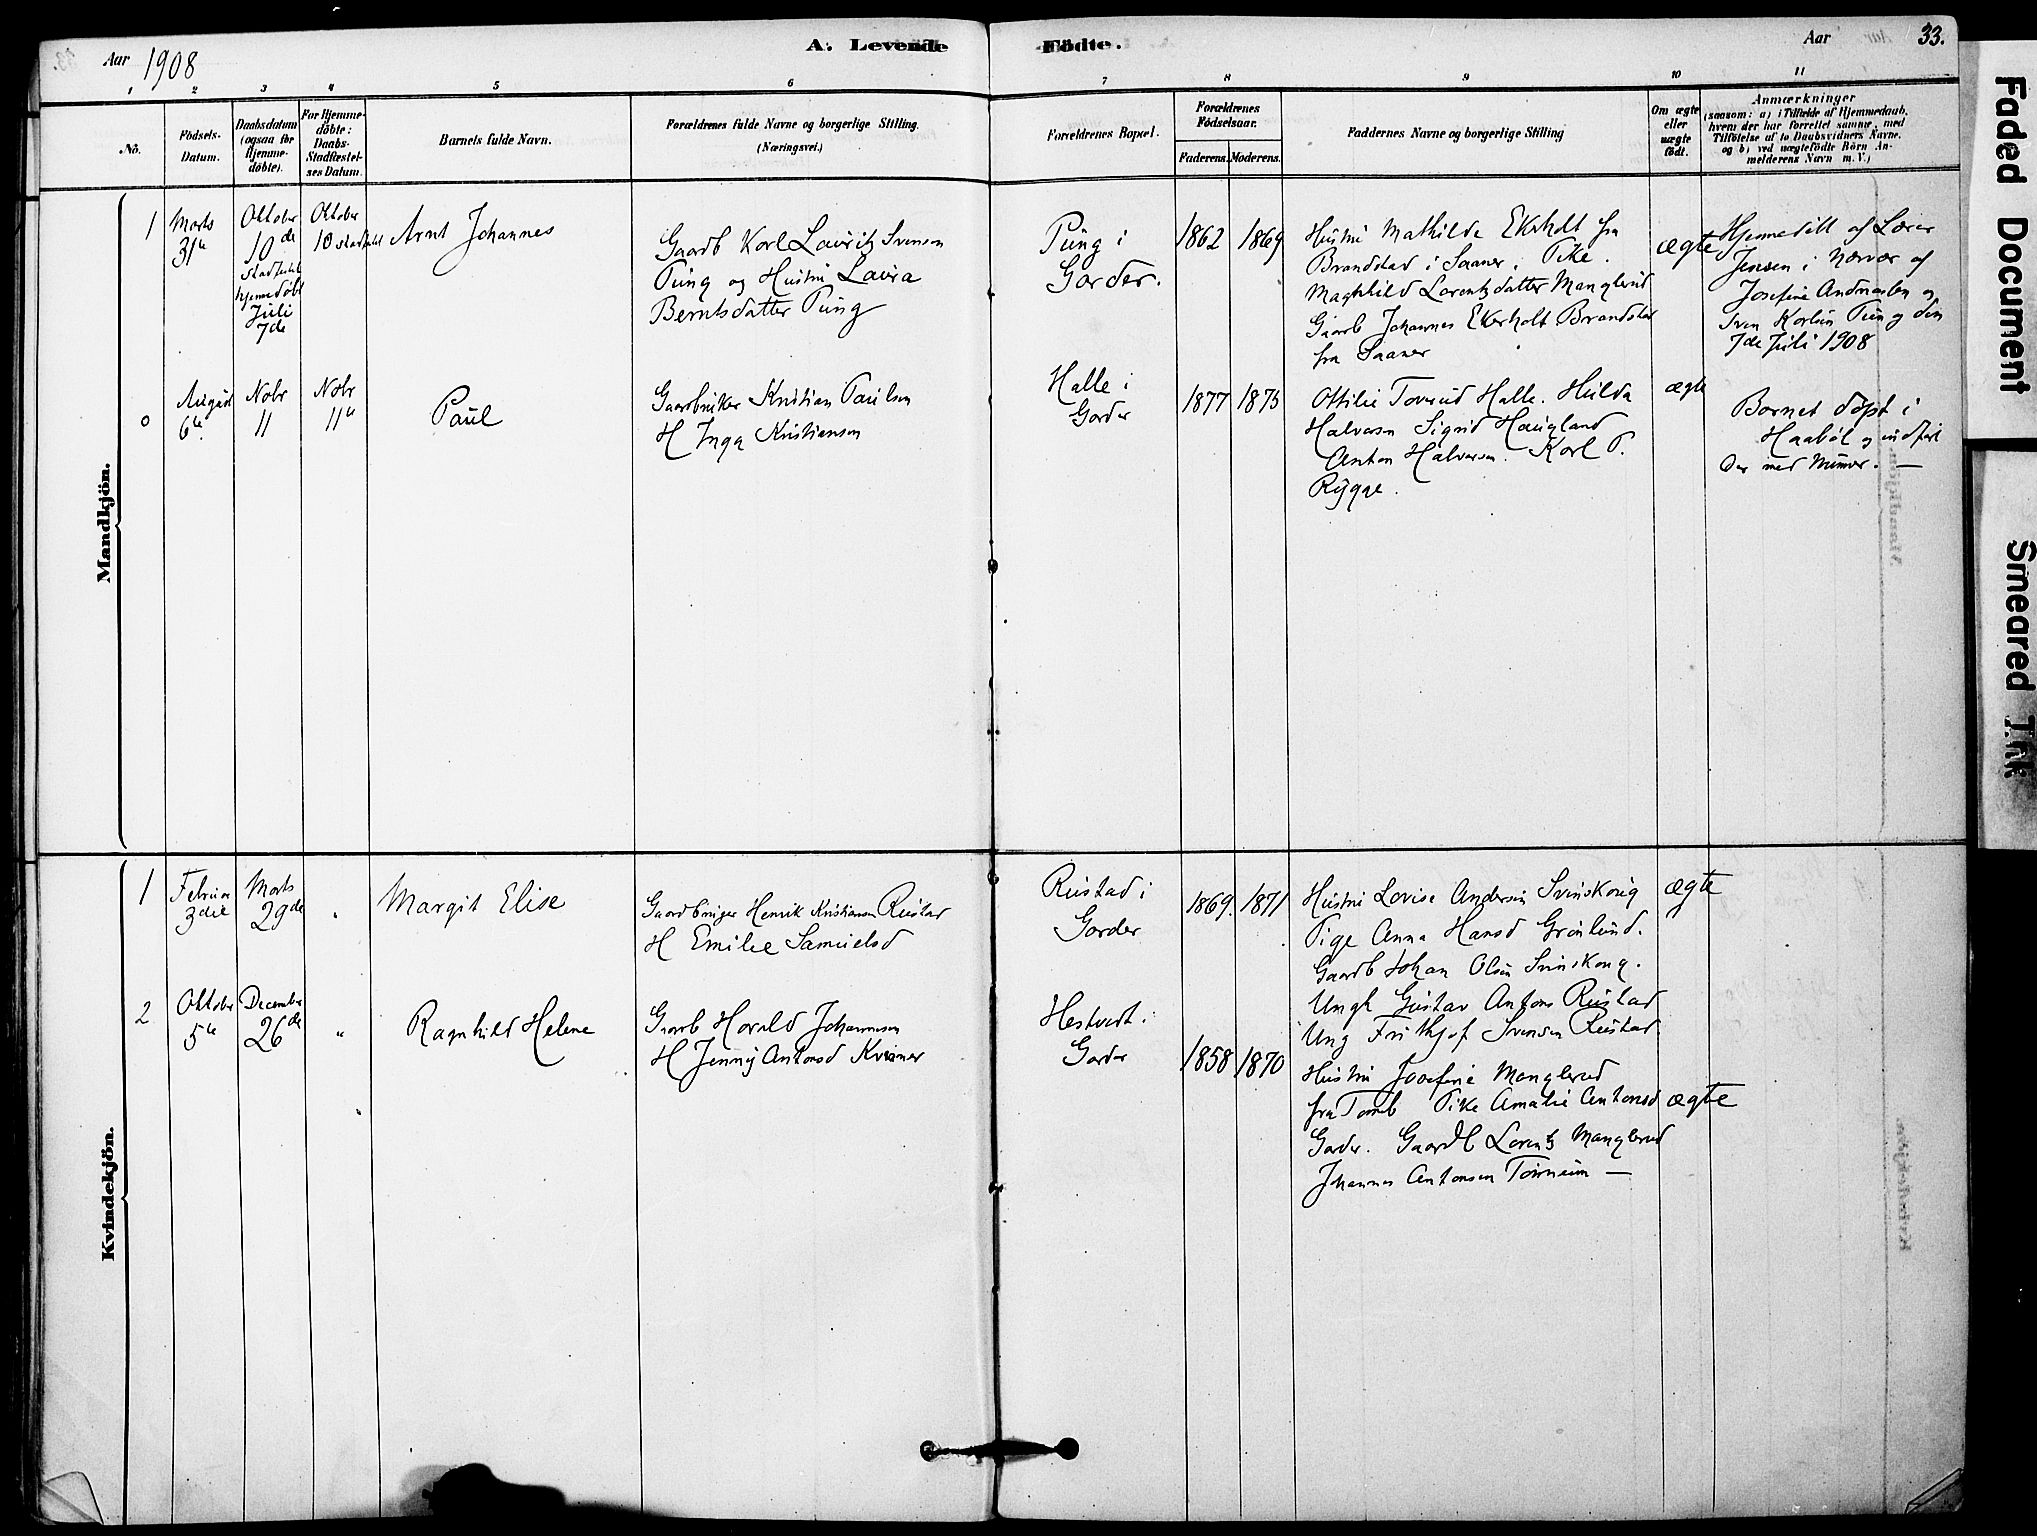 Aar 1908
A. Levende Födte.
Aar
33.
1 2 3 4 5 6 7 8 9 10 11
No.
Födsels-
Datum.
Daabsdatum
(ogsaa for
Hjemme-
döbte).
For Hjemme-
döbte:
Daabs-
Stadfæstel-
ses Datum.
Barnets fulde Navn.
Forældrenes fulde Navne og borgerlige Stilling
(Næringsvei.)
Forældrenes Bopæl.
Forældrenes
Födselsaar.
Faderens. Moderens.
Faddernes Navne og borgerlige Stilling
Om ægte
eller
uægte
födt.
Anmærkninger
(saasom: a) i Tilfælde af Hjemmedaab,
hvem der har forrettet samme, med
Tilföielse af to Daabsvidners Navne,
og b) ved uægtefödte Börn An-
melderens Navn m. V.)
Mandkjön.
1
Marts
31te
Oktober
10de
Stadfestet
hjemmedöbt
Juli
7de
Oktober
10 stadfestet
Arnt Johannes
Gaardb Karl Lauritz Svensen
Pung og Hustru Laura
Berntsdatter Pung
Pung i
Garder.
1862
1869
Hustru Mathilde Ekeholt fra
Brandstad i Saaner. Pike
Maghhild Lorentzdatter Manglerud
Gaarb Johannes Ekerholt Brandstad
fra Saaner
ægte
Hjemmedöbt af Lærer
Jensen i Nærvær af
Josefine Andreasen og
Sven Karlsen Pung den
7de Juli 1908
0
August
6te
Nobr
11
Nobr
11te
Paul
Gaardbruker Kristian Paulsen
H Inga Kristiansen
Halle i
Garder
1877
1875
Ottilie Toverud Halle. Hulda
Halvorsn Sigrid Haugland
Anton Halvorsen. Karl P.
Rygge.
ægte
Barnet döpt i
Haaböl og indfört
der med Numer. —
Kvindekjön.
1
Februar
3die
Marts
29de
"
Margit Elise
Gaardbruger Henrik Kristiansen Rustad
H Emilie Samuelsd
Rustad i
Garder
1869.
1871
Hustru Lovise Andersen Svinskoug
Pige Anna Hansd Grönlund.
Gaardb Johan Olsen Svinskoug.
Ungk Gustav Antons Rustad
Ung Frithjof Svensen Rustad.
ægte
2
Oktober
5te
December
26de
"
Ragnhild Helene
Gaarb Harald Johannesen
H Jenny Antonsd Kviser
Hestvedt i
Garder
1858
1870
Hustru Josefine Manglerud
fra Tomb Pike Amalie Antonsd
Garder. Gaardb Lorentz Manglerud
Johannes Antonsen Tornum —
ægte
Faded Document
Smeared Ink